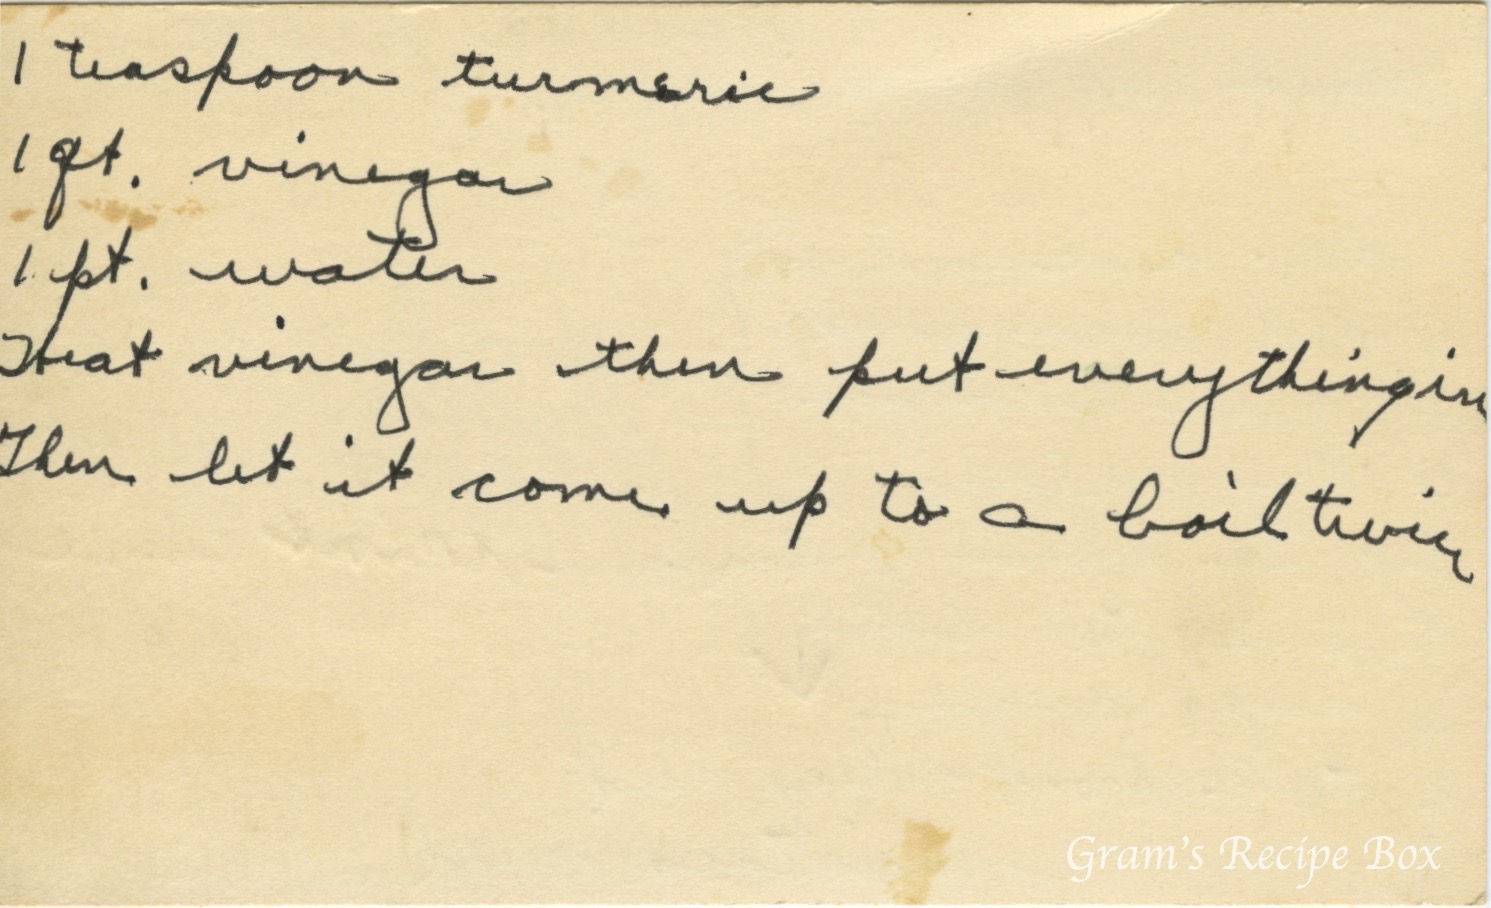 1 teaspoon turmeric
1 qt. vinegar
1 pt. water
Heat vinegar then put everything in
Then let it come up to a boil twice
Gram's Recipe Box